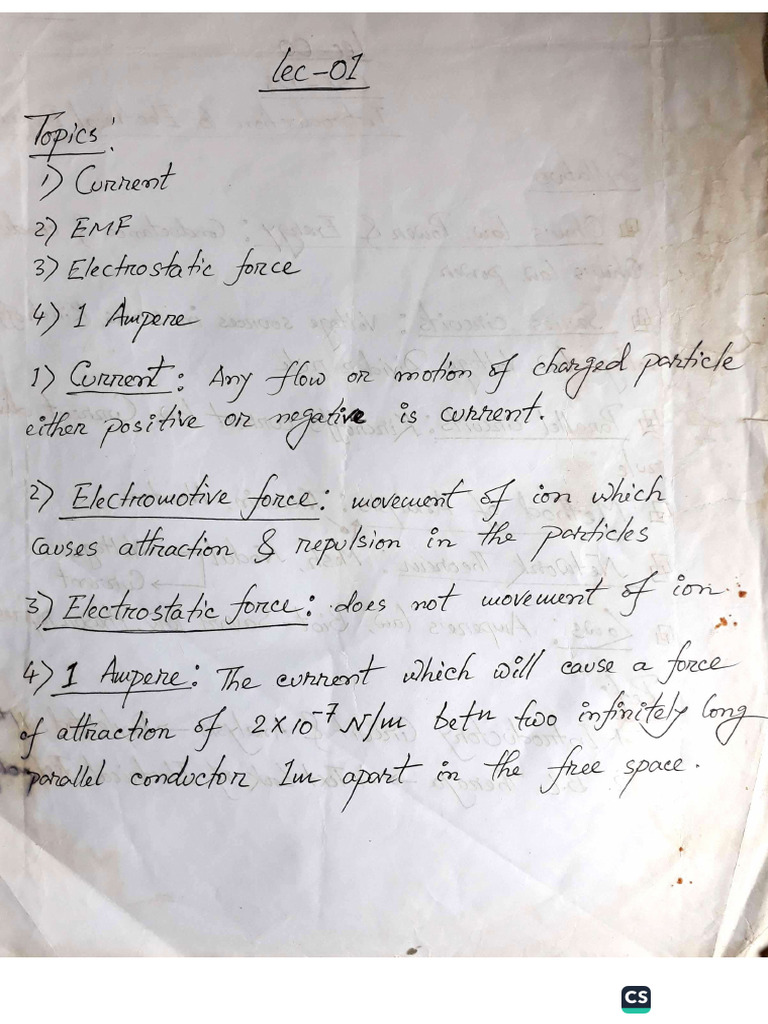 Lec-01
Topics:
1) Current
2) EMF
3) Electrostatic force
4) 1 Ampere
1) Current: Any flow or motion of charged particle
either positive or negative is current.
2) Electromotive force: movement of ion which
causes attraction & repulsion in the particles
3) Electrostatic force: does not movement of ion.
4) 1 Ampere: The current which will cause a force
of attraction of 2×10⁻⁷ N/m betn two infinitely long
parallel conductor 1m apart in the free space.
CS